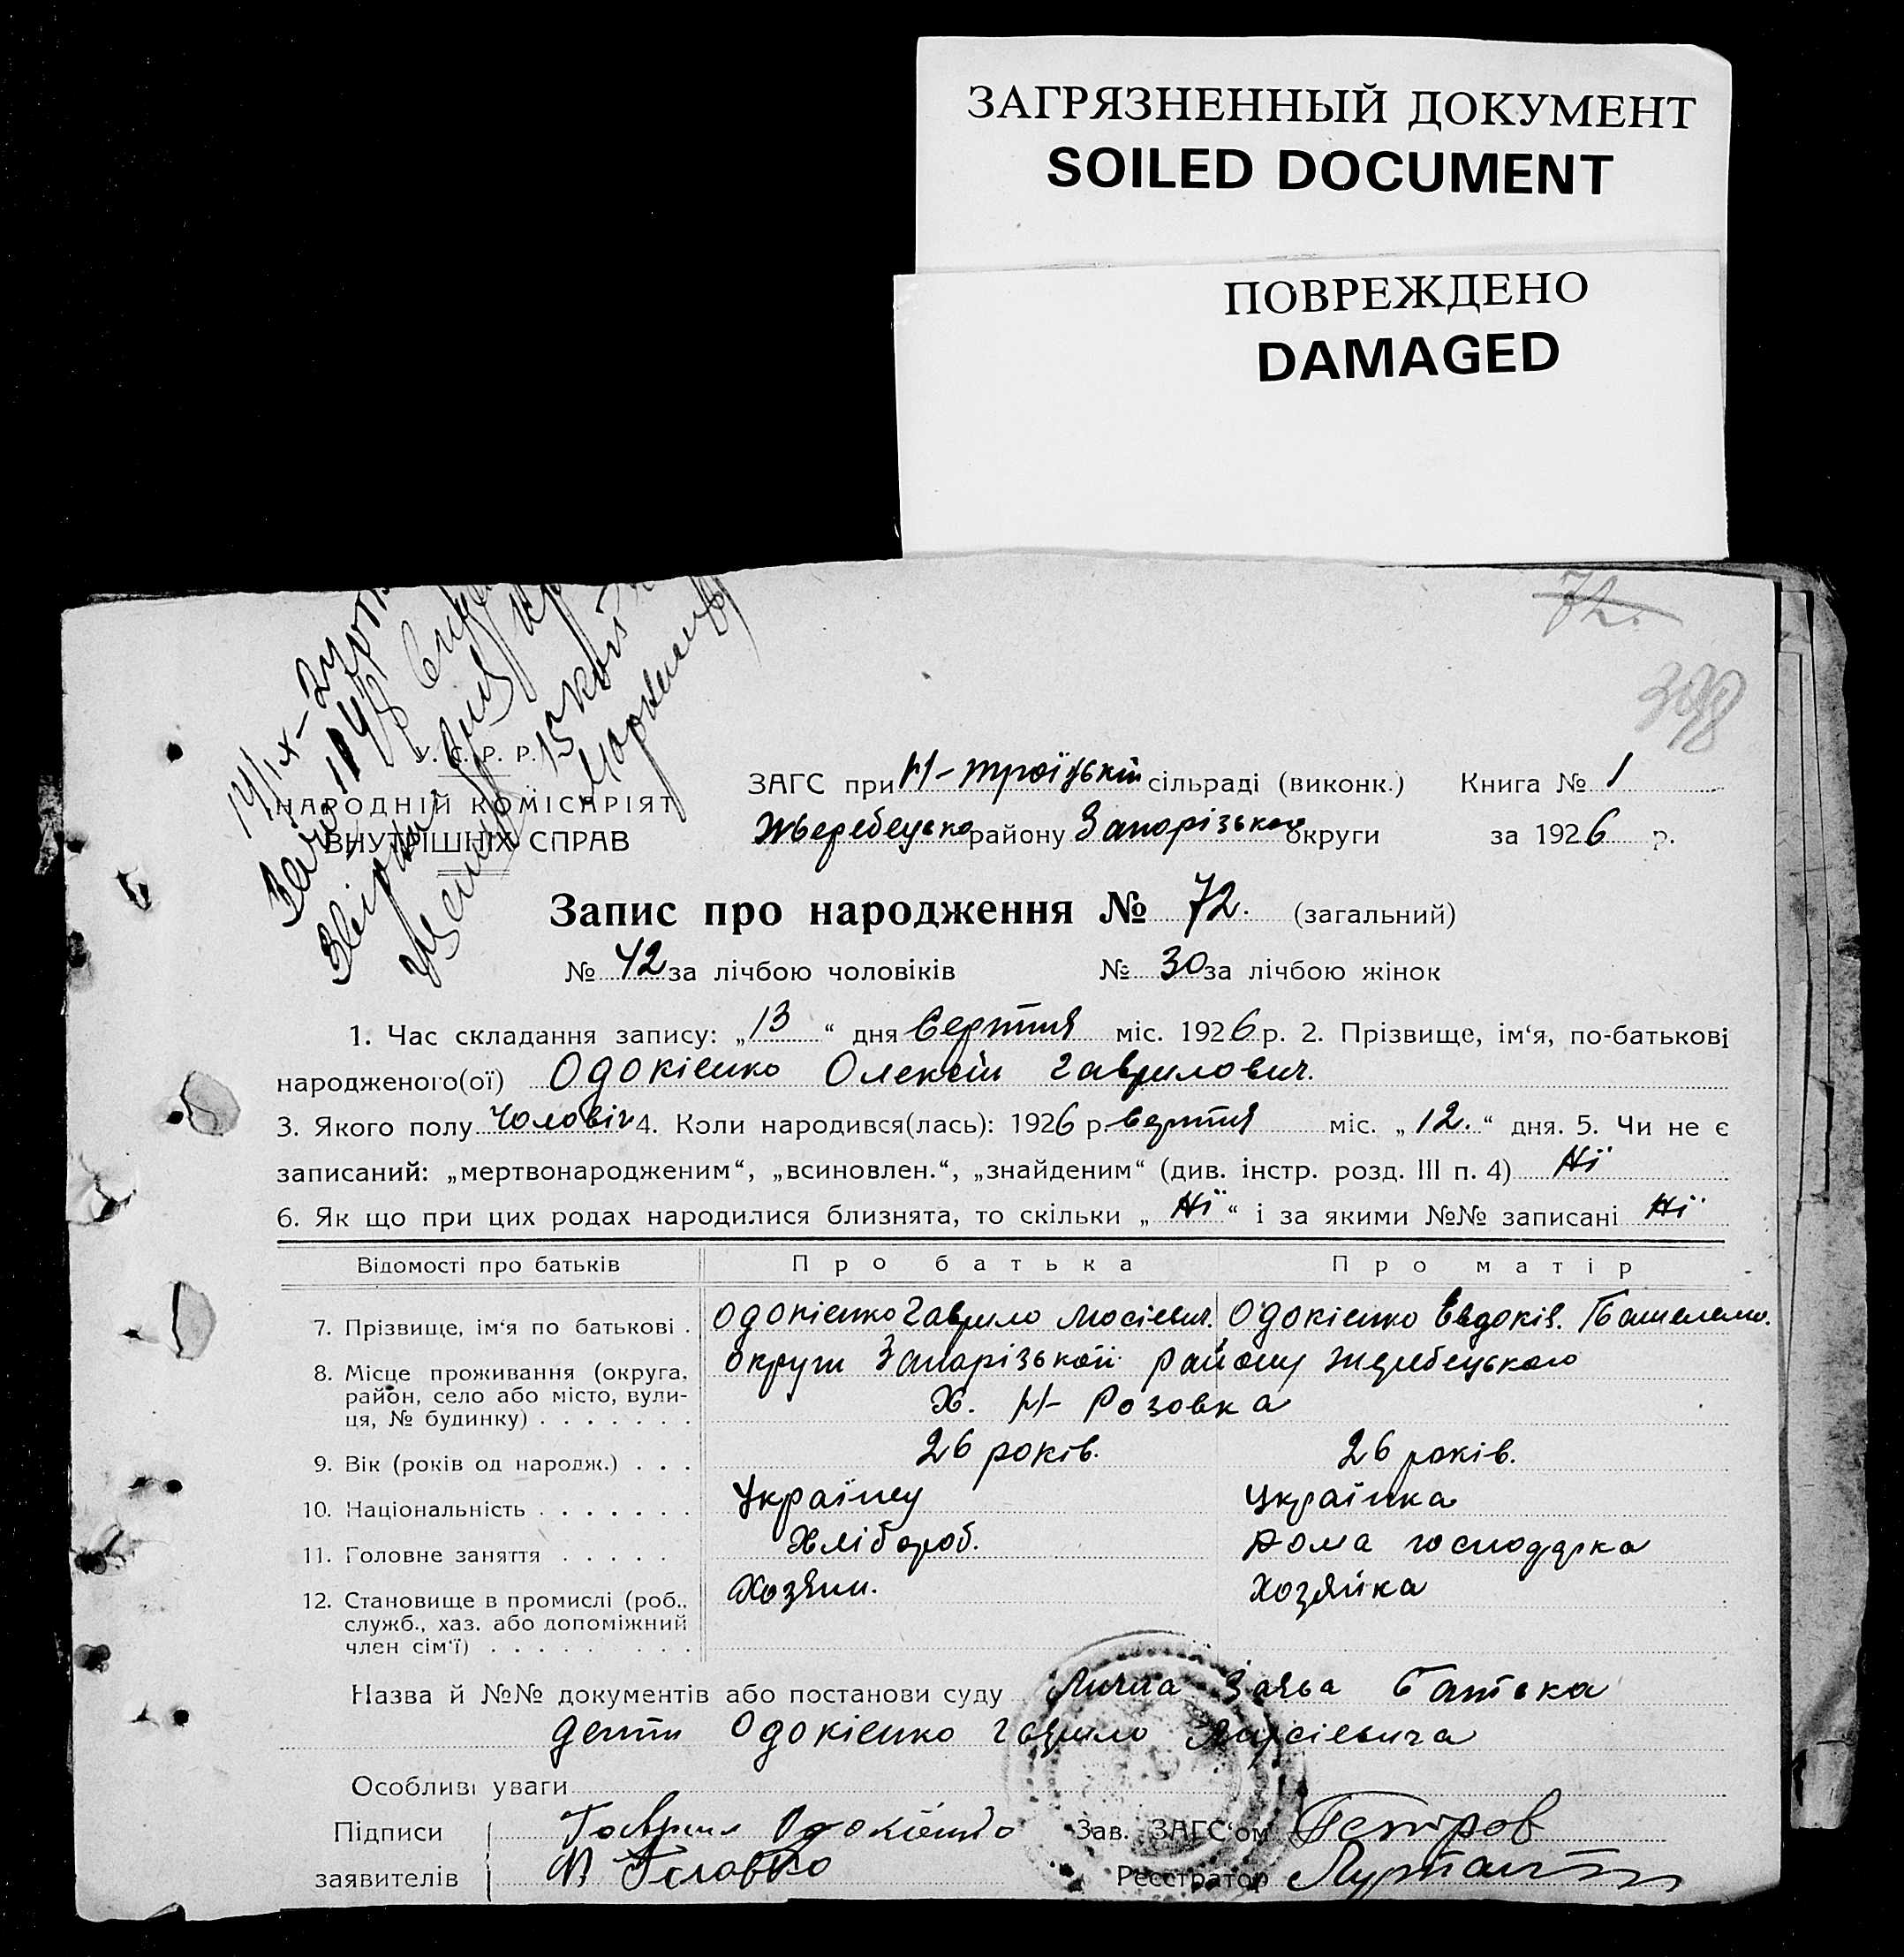 ЗАГРЯЗНЕННЫЙ ДОКУМЕНТ
SOILED DOCUMENT
ПОВРЕЖДЕНО
DAMAGED
72.
У. С. Р. Р.
НАРОДНІЙ КОМІСАРІЯТ
ВНУТРІШНІХ СПРАВ
ЗАГС при Н-троїцькій сільраді (виконк.) Книга № 1
Жеребецько району Запорізької округи за 1926 р.
Запис про народження № 72. (загальний)
№ 42 за лічбою чоловіків № 30 за лічбою жінок
1. Час складання запису: „13“ дня Серпня міс. 1926 р. 2. Прізвище, ім‘я, по-батькові
народженого(ої) Одокіенко Олексій Гаврилович.
3. Якого полу Чоловіч 4. Коли народився(лась): 1926 р. Серпня міс. „12.“ дня. 5. Чи не є
записаний: „мертвонародженим“, „всиновлен.“, „знайденим“ (див. інстр. розд. III п. 4) Ні
6. Як що при цих родах народилися близнята, то скільки „Ні“ і за якими №№ записані Ні
Відомості про батьків Про батька Про матір
7. Прізвище, ім‘я по батькові . Одокіенко Гаврило Мосіевич. Одокіенко Евдокія.
8. Місце проживання (округа, округи Запорізькой району Жеребецького
район, село або місто, вули-
ця, № будинку) . . . . . . . Х. Н-Розовка
9. Вік (років од народж.) . . . 26 років. 26 років.
10. Національність . . . . . . . Українец Українка
11. Головне заняття . . . . . Хлібороб. Дома господарка
12. Становище в промислі (роб., Хозяин. Хозяйка
служб., хаз. або допоміжний
член сім‘ї) . . . . . . . . .
Назва й №№ документів або постанови суду Лична Заява Батька
дитя Одокіенко Гаврило Мосіевича
Особливі уваги
Підписи Гаврило Одокіенко Зав. ЗАГС‘ом Петров
заявителів Головко Реєстратор